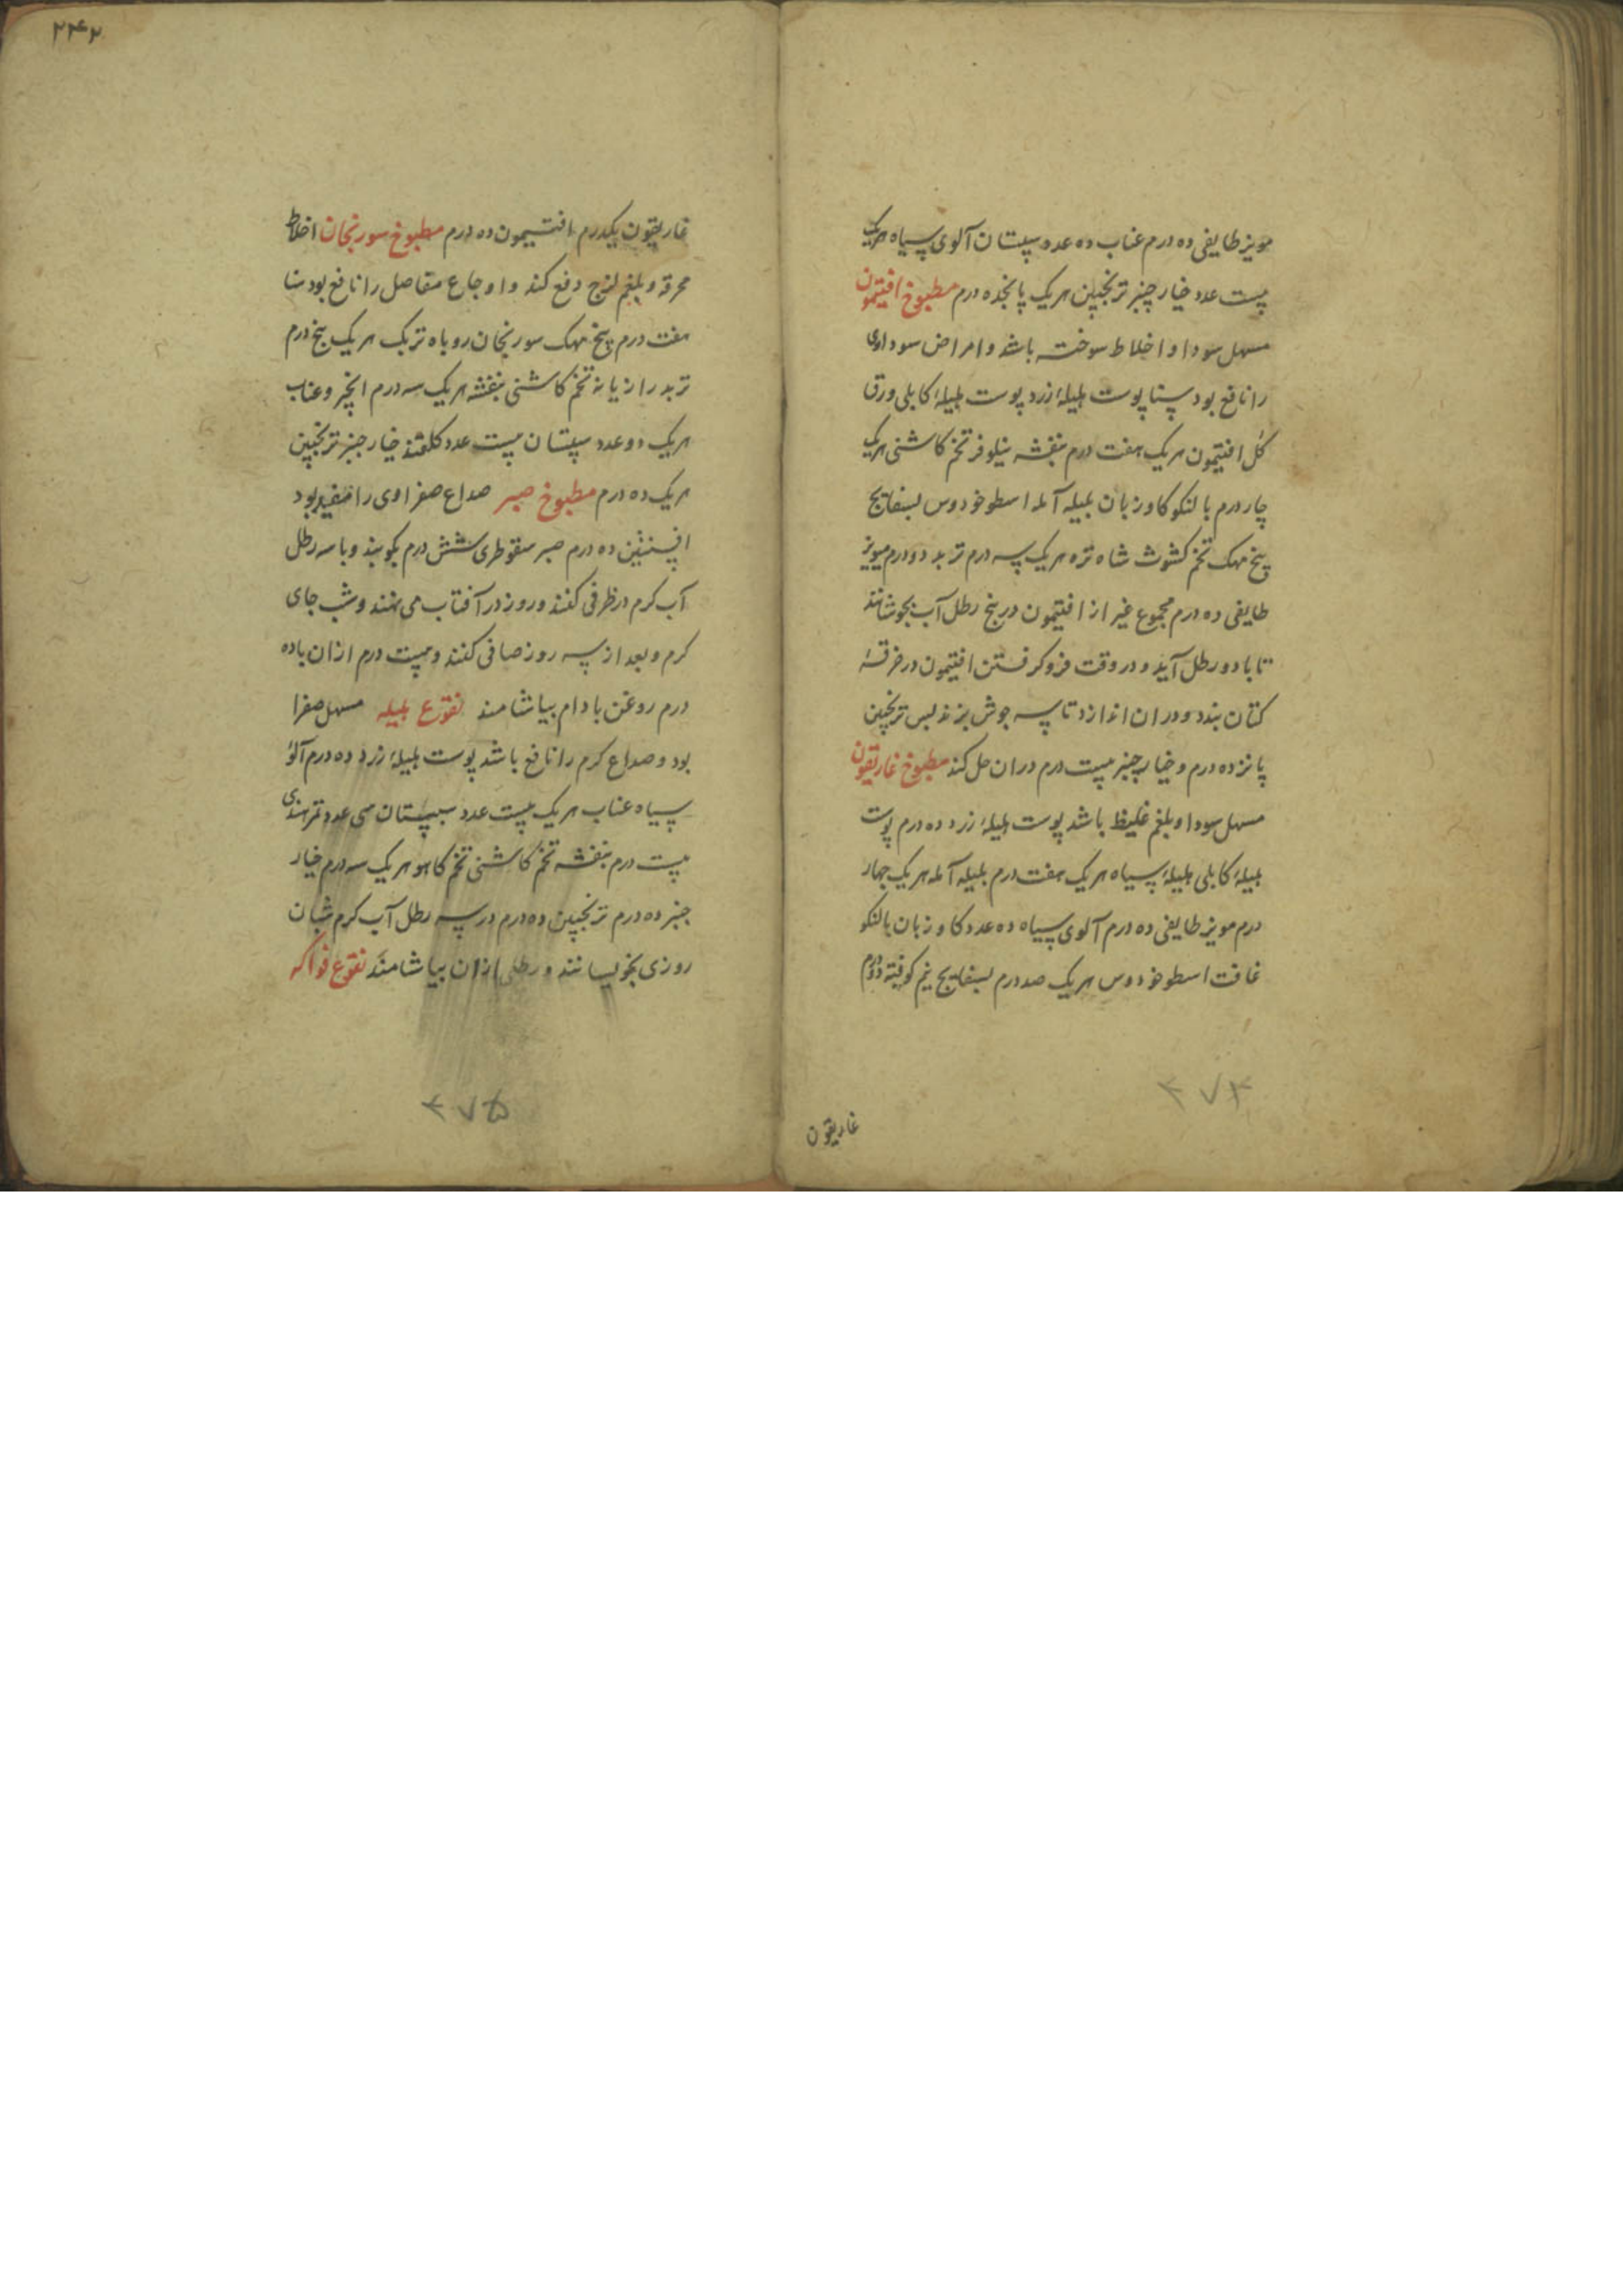 مویز طایفی ده درم عناب ده عدد سپستان آلوی سیاه هریک
بیست عدد خیار چنبر ترنجبین هریک پانجده درم مطبوخ افتیمون
مسهل سودا و اخلاط سوخته باشد و امراض سوداوی
را نافع بود سنا پوست هلیلهٔ زرد پوست هلیلهٔ کابلی ورق
کل افتیمون هریک هفت درم بنفشه نیلوفر تخم کاشنی هریک
چار درم بالنکو کاوزبان بلیله آمله اسطوخودوس بسفایج
بیخ مهک تخم کشوث شاه تره هریک سه درم تربد دو درم مویز
طایفی ده درم مجموع غیر از افتیمون در پنج رطل آب بجوشانند
تا با دو رطل آید و در وقت فرو کرفستن افتیمون در خرقهٔ
کتان بندد و دران اندازد تا سه جوش بزند پس ترنجبین
پانزده درم و خیار چنبر بیست درم دران حل کند مطبوخ غاریقون
مسهل سودا و بلغم غلیظ باشد پوست هلیلهٔ زرد ده درم پوست
هلیلهٔ کابلی هلیلهٔ سیاه هریک هفت درم بلیله آمله هریک چهار
درم مویز طایفی ده درم آلوی سیاه ده عدد کاوزبان بالنکو
غافت اسطوخودوس هریک صد درم بسفایج نیم کوفته دو درم
غاریقون
۴۷۴
۲۴۲
غاریقون یکدرم افتیمون ده درم مطبوخ سورنجان اخلاط
محرقه و بلغم لزج دفع کند و اوجاع مفاصل را نافع بود سنا
هفت درم بیخ مهک سورنجان روباه تربک هریک پنج درم
تربد رازیانه تخم کاشنی بنفشه هریک سه درم انجیر و عناب
هریک دو عدد سپستان بیست عدد کلقند خیار چنبر ترنجبین
هریک ده درم مطبوخ صبر صداع صفراوی را مفید بود
افسنتین ده درم صبر سقوطری شش درم بکوبند و با سه رطل
آب کرم در ظرفی کنند و روز در آفتاب می نهند و شب جای
کرم و بعد از سه روز صافی کنند و بیست درم ازان با ده
درم روغن بادام بیاشامند نقوع هلیله مسهل صفرا
بود و صداع کرم را نافع باشد پوست هلیلهٔ زرد ده درم آلو
سیاه عناب هریک بیست عدد سپستان سی عدد تمر هندی
بیست درم بنفشه تخم کاشنی تخم کاهو هریک سه درم خیار
چنبر ده درم ترنجبین ده درم در سه رطل آب کرم شبان
روزی بخویسانند و رطلی ازان بیاشامند نقوع فواکه
۴۷۵